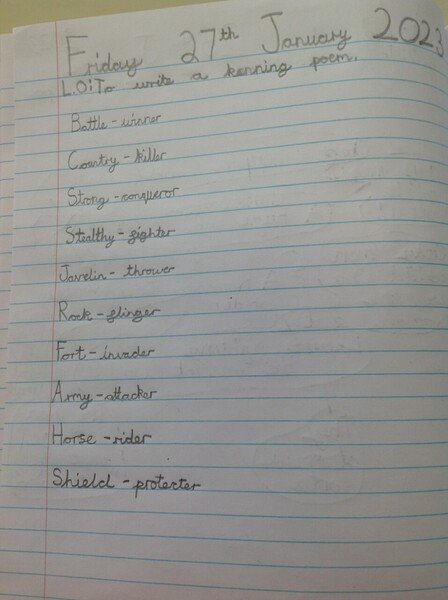 Friday 27th January 2023
L.O: To write a kenning poem.
Battle - winner
Country - killer
Strong - conqueror
Stealthy - fighter
Javelin - thrower
Rock - flinger
Fort - invader
Army - attacker
Horse - rider
Shield - protecter